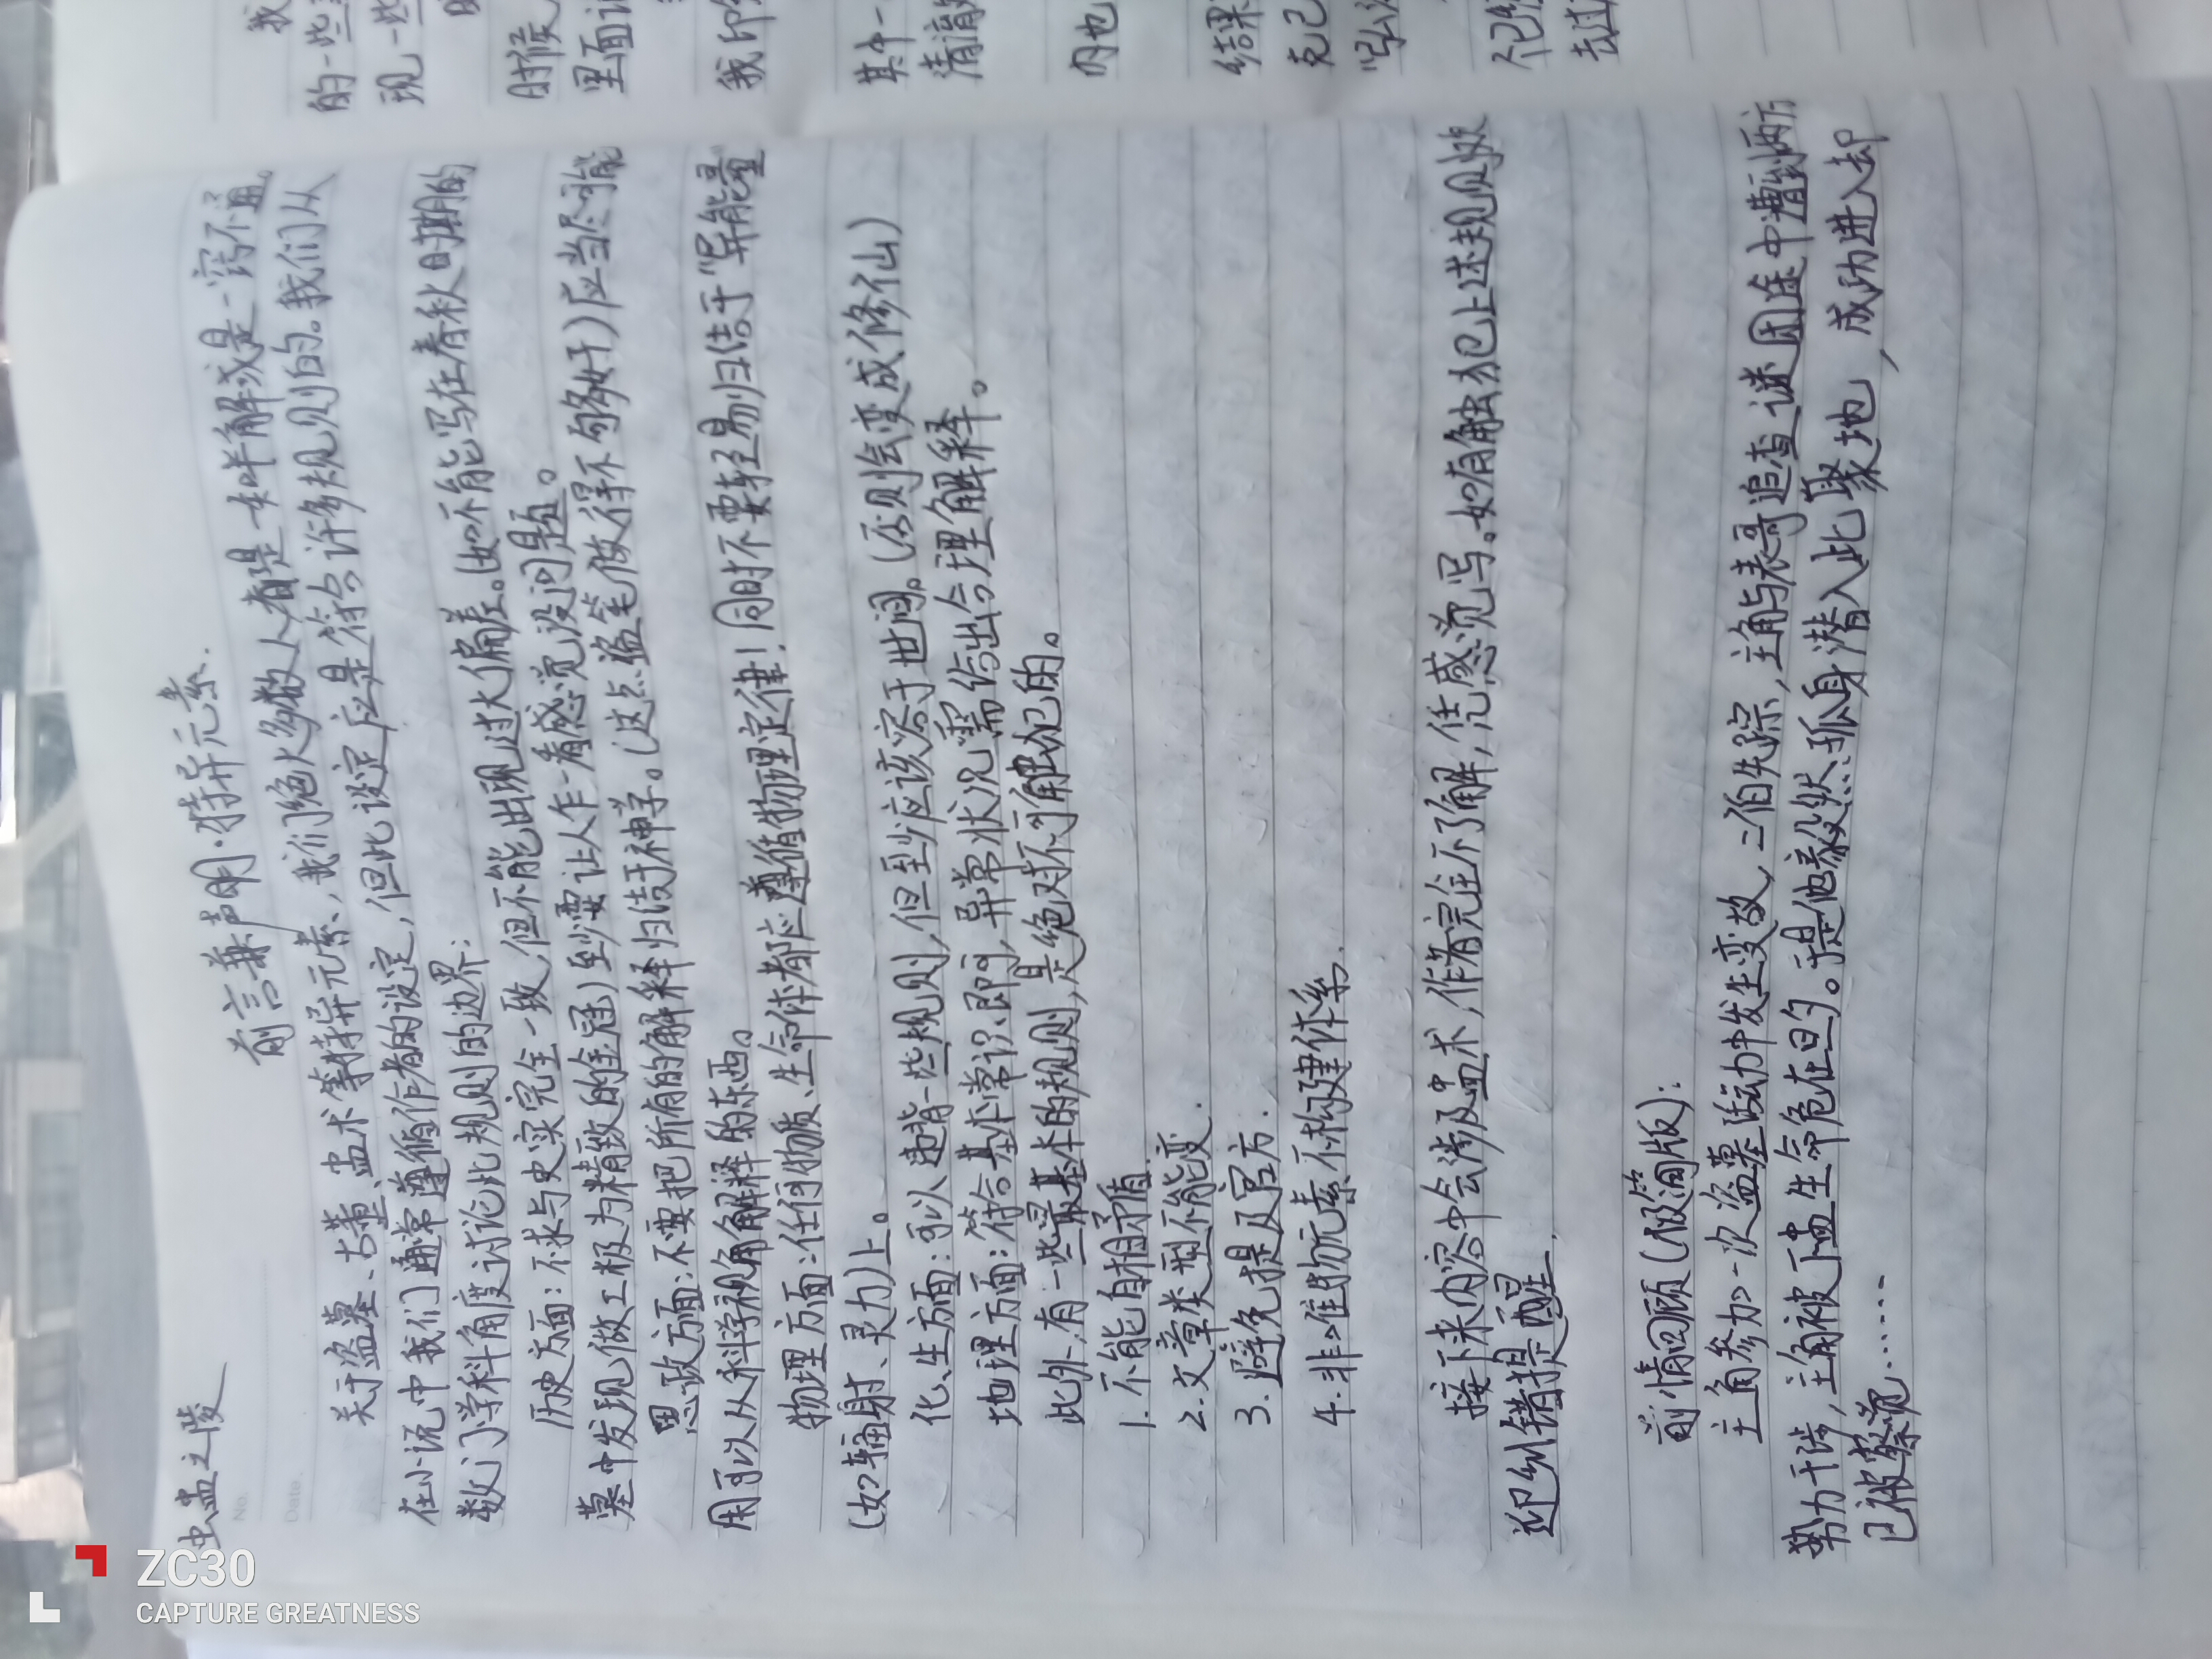 虫蛊之陵
No.
Date.
前言兼声明·特异元素.
关于盗墓、古董、蛊术等特异元素，我们绝大多数人都是一知半解或是一窍不通。
在小说中我们通常遵循作者的设定，但此设定应是符合许多规则的。我们从
数门学科角度讨论此规则的边界：
历史方面：不求与史实完全一致，但不能出现过大偏差。（如不能写在春秋时期的
墓中发现做工极为精致的金冠）至少要让人乍一看感觉没问题。
思政方面：不要把所有的解释归结于神学。（这点盗笔做得不够好）应当尽可能
用可以从科学视角解释的东西。
物理方面：任何物质、生命体都应遵循物理定律！同时不要轻易归结于“异能量
（如辐射、灵力）上。
化、生方面：可以违背一些规则，但至少应该容于世间。（否则会变成修仙）
地理方面：符合基本常识即可，异常状况需给出合理解释。
此外，有一些最基本的规则，是绝对不可触犯的。
1.不能自相矛盾.
2.文章类型不能变.
3.避免提及官方.
4.非唯物元素不构建体系.
接下来内容中会涉及蛊术，作者完全不了解，凭感觉写。如有触犯上述规则处
迎纠错提醒.
前情回顾（极简版）：
主角参加一次盗墓活动中发生变故，二伯失踪，主角与表哥追查谜团途中遭到两方
势力干涉，主角被下蛊生命危在旦夕。于是他毅然孤身潜入此聚地，成功进入却
已被察觉……
我
的一些
现一些
时候
里面
我印
其中一
清滴
内也
结果
克己
“弘
个已
去过
ZC30
CAPTURE GREATNESS